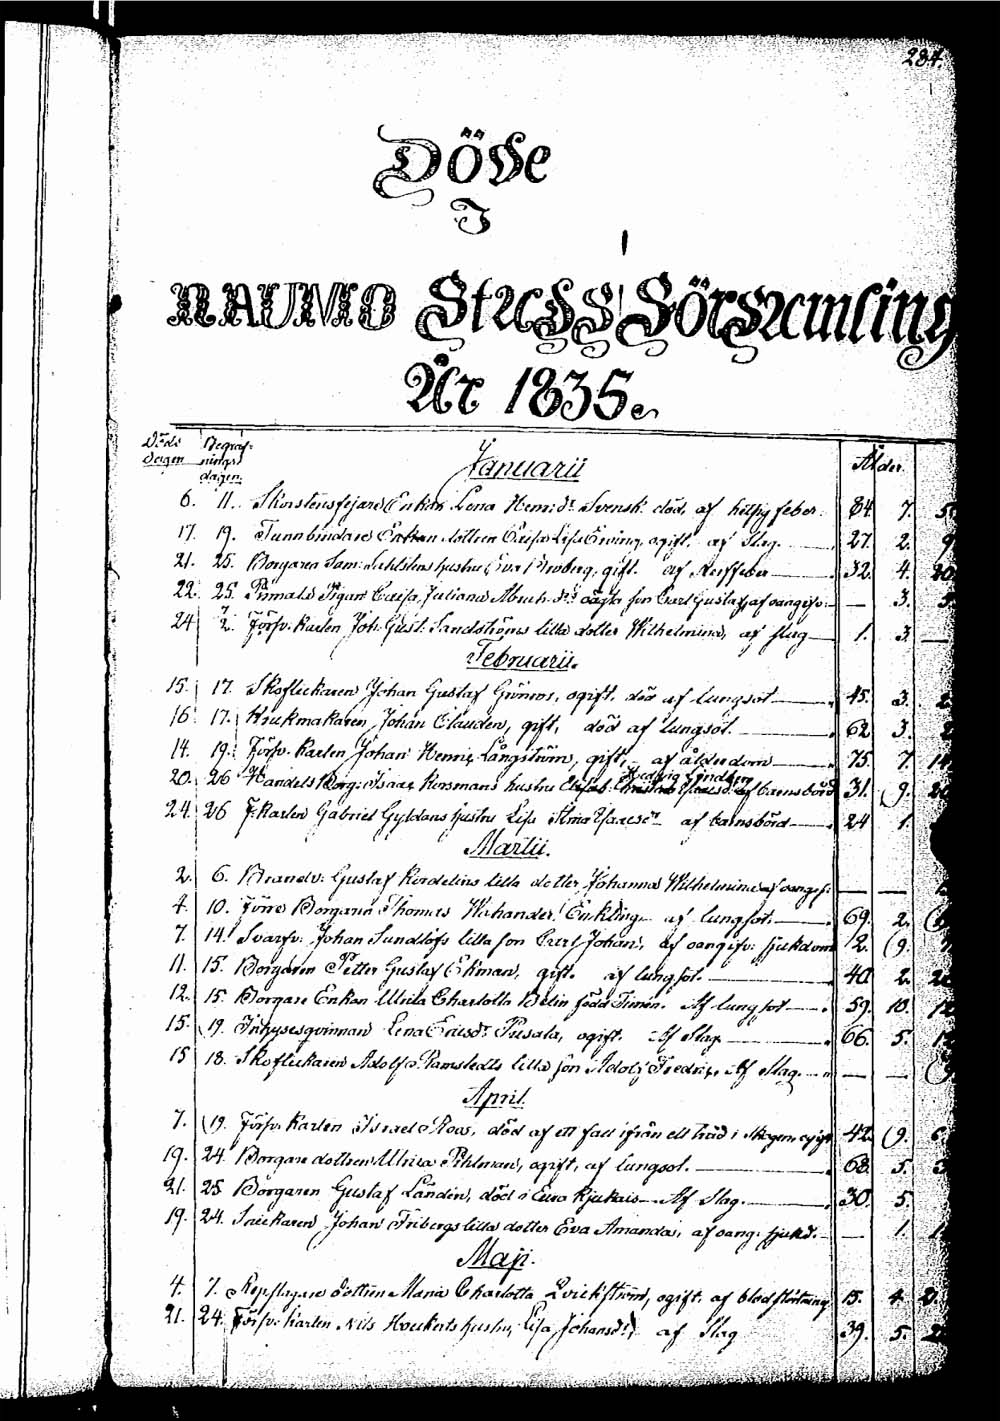 284.
Döde
I
RAUMO Stads Församling
År 1835.
Döds dagen Begraf- nings dagen Januarii Ålder
6. 11. Skorstensfejare Enkan Lena Henr:dr Svensk. död af hitsig feber. 84 7.
17. 19. Tunnbindare dottren Caisa Lisa, ogift. af Slag. 27. 2. 9
21. 25. Borgaren Sam: hustru Eva Broberg, gift. af Nerffeber 32. 4. 20
22. 25. Pigan Caisa Juliana oägta son Carl Gustaf, af oangifv: — 3.
24 2. Försv. Karlen Joh. Gust. Sandströms lilla dotter Wilhelmina, af slag 1. 3. —
Februarii.
15. 17. Skoflickaren Johan Gustaf Grönros, ogift. död af lungsot 45. 3. 2
16. 17. Krukmakaren Johan Clauden, gift, död af lungsot. 62 3. 2
14. 19. Försv. Karlen Johan Henric Långström, gift, af ålderdom 75. 7. 14
20. 26 Handels Borg: Isaac Korsmans hustru Hedvig af barnsbörd 31. 9. 20
24. 26 F. Karlen Gabriel Gyldans hustru Lisa Isacsdr af barnsbörd 24 1.
Martii.
2. 6. Brandv: Gustaf Kordelins lilla dotter Johanna Wilhelmina af oangif: — —
4. 10. Förre Borgaren Thomas Wahander. Enkling af lungsot. 69. 2.
7. 14. Svarfv: Johan Sundlöfs lilla son Carl Johan, af oangifv: sjukdom 2. 9.
11. 15. Borgaren Petter Gustaf Ekman, gift. af lungsot. 40 2. 20
12. 15. Borgare Enkan Ulrica Charlotta Belin född Timen. Af lungsot 59. 10. 12
15. 19. Inhysesqvinnan Lena Ericsdr Pusala, ogift. Af Slag. 66. 5.
15 18. Skoflickaren Adolf Ramstedts lilla son Adolf Fredric. Af Slag. — —
April.
7. 19. Försv. Karlen Israel Roos, död af ett fall ifrån ett träd i skogen, ogift 42. 9. 6
19. 24. Borgare dottren Ulrica Pihlman, ogift, af lungsot. 68. 5. 3
21. 25. Borgaren Gustaf Landin, död i Euro Af Slag. 30. 5.
19. 24. Snickaren Johan Fribergs lilla dotter Eva Amanda, af oang: sjukd. — 1.
Maji.
4. 7. Repslagare dottren Maria Charlotta Qvickström, ogift. af blodstörtning 15. 4. 2
21. 24. Försv: Karlen Nils hustru, Lisa Johansdr, af Slag 39. 5. 2